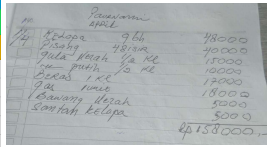 Kelapa 9bh 48000
Pisang 4 Sisir 40000
gula Merah 1/2 KG 15000
putih 1/2 KG 10000
Beras 1 KG 17000
gas 18000
Bawang Merah 5000
Santan kelapa 5000
Rp 158000,-